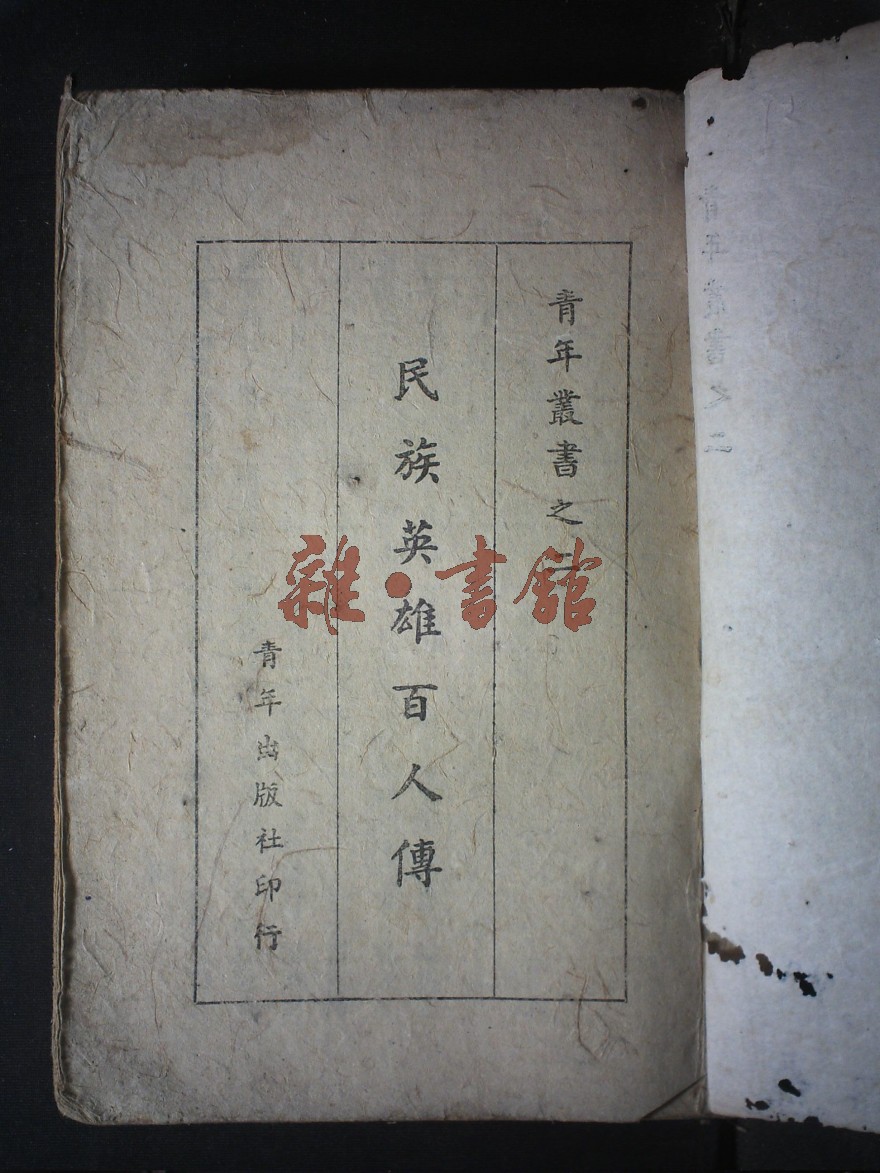 青年叢書之二
民族英雄百人傳
青年出版社印行
雜·書館
青年叢書之二